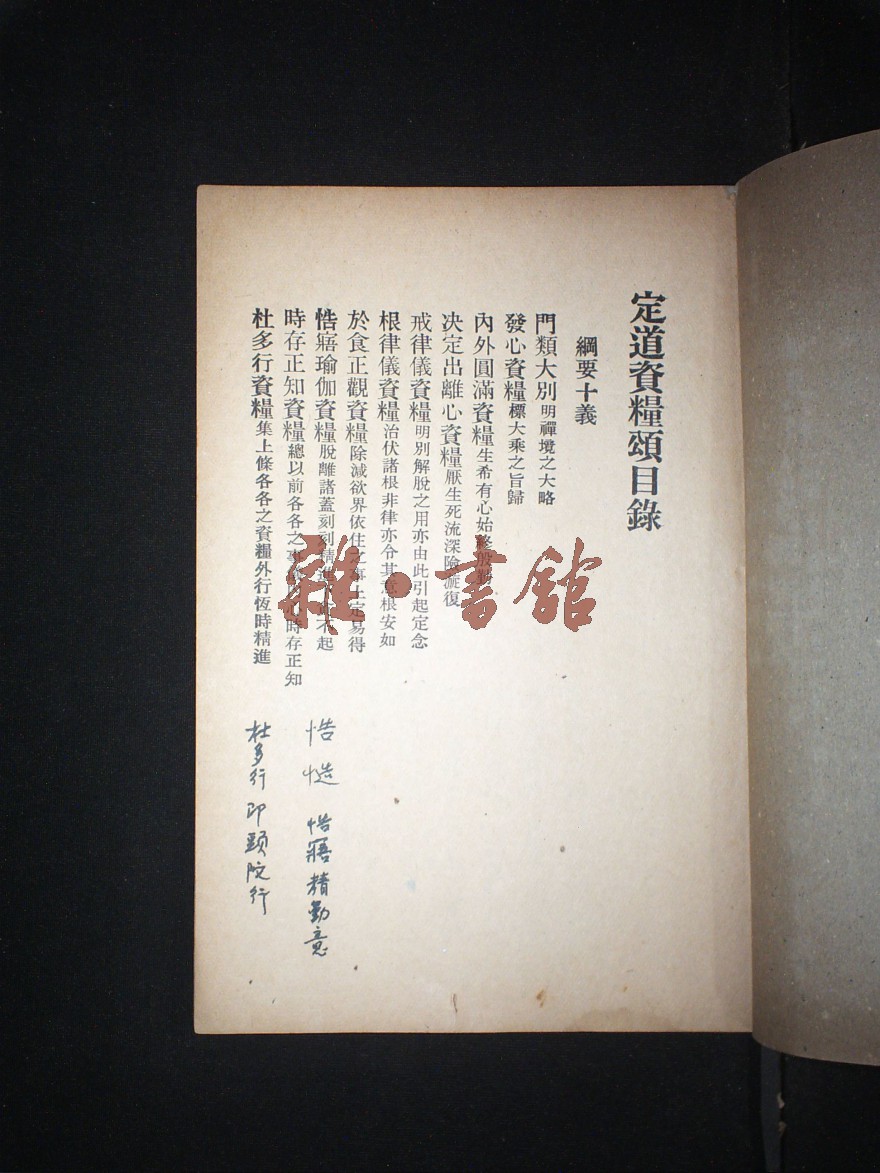 定道資糧頌目錄
綱要十義
門類大別明禪境之大略
發心資糧標大乘之旨歸
內外圓滿資糧生希有心始終殷勤
決定出離心資糧厭生死流深險漩復
戒律儀資糧明別解脫之用亦由此引起定念
根律儀資糧治伏諸根非律亦令其意根安如
於食正觀資糧除滅欲界依住之事上定易得
悎寤瑜伽資糧脫離諸蓋刻刻精進不起
時存正知資糧總以前各各之心時存正知
杜多行資糧集上條各各之資糧外行恆時精進
悎 慥 悎寤精勤意
杜多行 即頭陀行
雜·書館